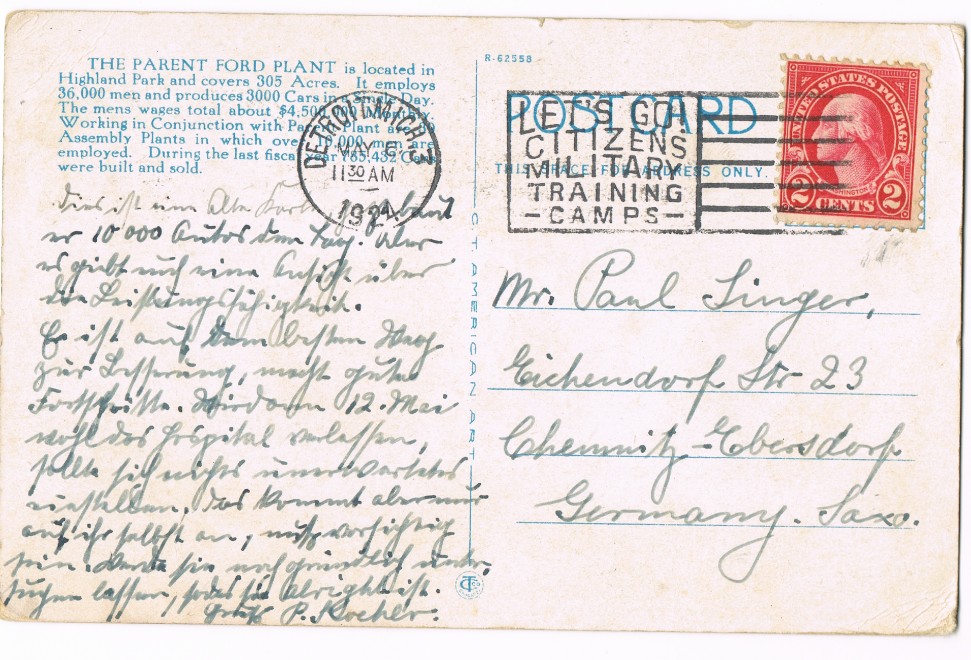 THE PARENT FORD PLANT is located in
Highland Park and covers 305 Acres. It employs
36,000 men and produces 3000 Cars in a Single Day.
The mens wages total about $4,500,000 Monthly.
Working in Conjunction with Parent Plant are
Assembly Plants in which over 10,000 men are
employed. During the last fiscal year 785,432 Cars
were built and sold.
R-62558
POST CARD
THIS SPACE FOR ADDRESS ONLY.
DETROIT, MICH.
MAY 5
11 30 AM
1924
LET'S GO!
CITIZENS
MILITARY
TRAINING
-CAMPS-
UNITED STATES POSTAGE
WASHINGTON
2 CENTS 2
Dies ist eine alte Karte, baut
er 10 000 Autos den Tag. Aber
es giebt euch eine Ansicht über
die Leistungsfähigkeit.
Es ist auf dem besten Weg
zur Besserung, macht gute
Fortschritte. Wird am 12. Mai
wohl das Hospital verlassen,
sollte sich nichts unerwartetes
einstellen. Das kommt aber nur
auf ihr selbst an, muss vorsichtig
sein. Werde sie noch gründlich unter-
suchen lassen, sodas sie alright ist.
Gruß P. Kocher.
CT AMERICAN ART
Mr. Paul Singer,
Eichendorf Str 23
Chemnitz-Ebersdorf
Germany. Saxo.